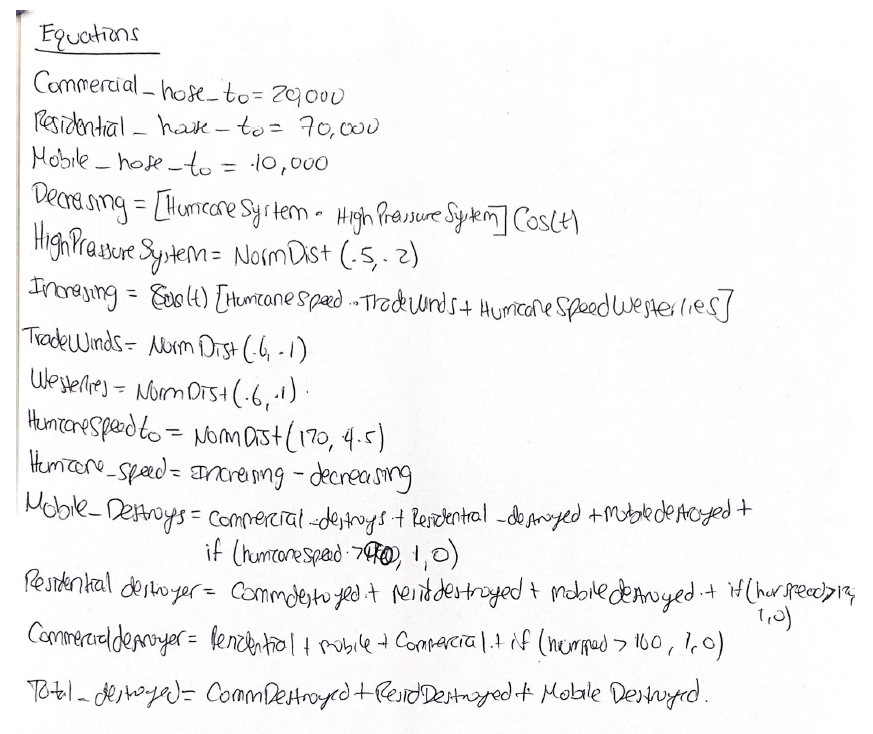 Equations
Commercial_hose_to = 20,000
Residential_hose_to = 70,000
Mobile_hose_to = 10,000
Decreasing = [Hurricane System · High Pressure System] Cos(t)
High Pressure System = Norm Dist (.5, .2)
Increasing = Cos(t) [Hurricane speed · Trade Winds + Hurricane Speed Westerlies]
Trade Winds = Norm Dist (.6, .1)
Westerlies = Norm Dist (.6, .1)
Hurricane Speed to = Norm Dist (170, 4.5)
Hurricane_speed = Increasing - decreasing
Mobile_Destroys = Commercial_destroys + Residential_destroyed + mobile destroyed +
if (hurricane speed > , 1, 0)
Residential destroyer = Comm destroyed + resid destroyed + mobile destroyed + if (hur speed >
1, 0)
Commercial destroyer = Residential + mobile + Commercial + if ( > 160, 1, 0)
Total_destroyed = Comm Destroyed + Resid Destroyed + Mobile Destroyed.